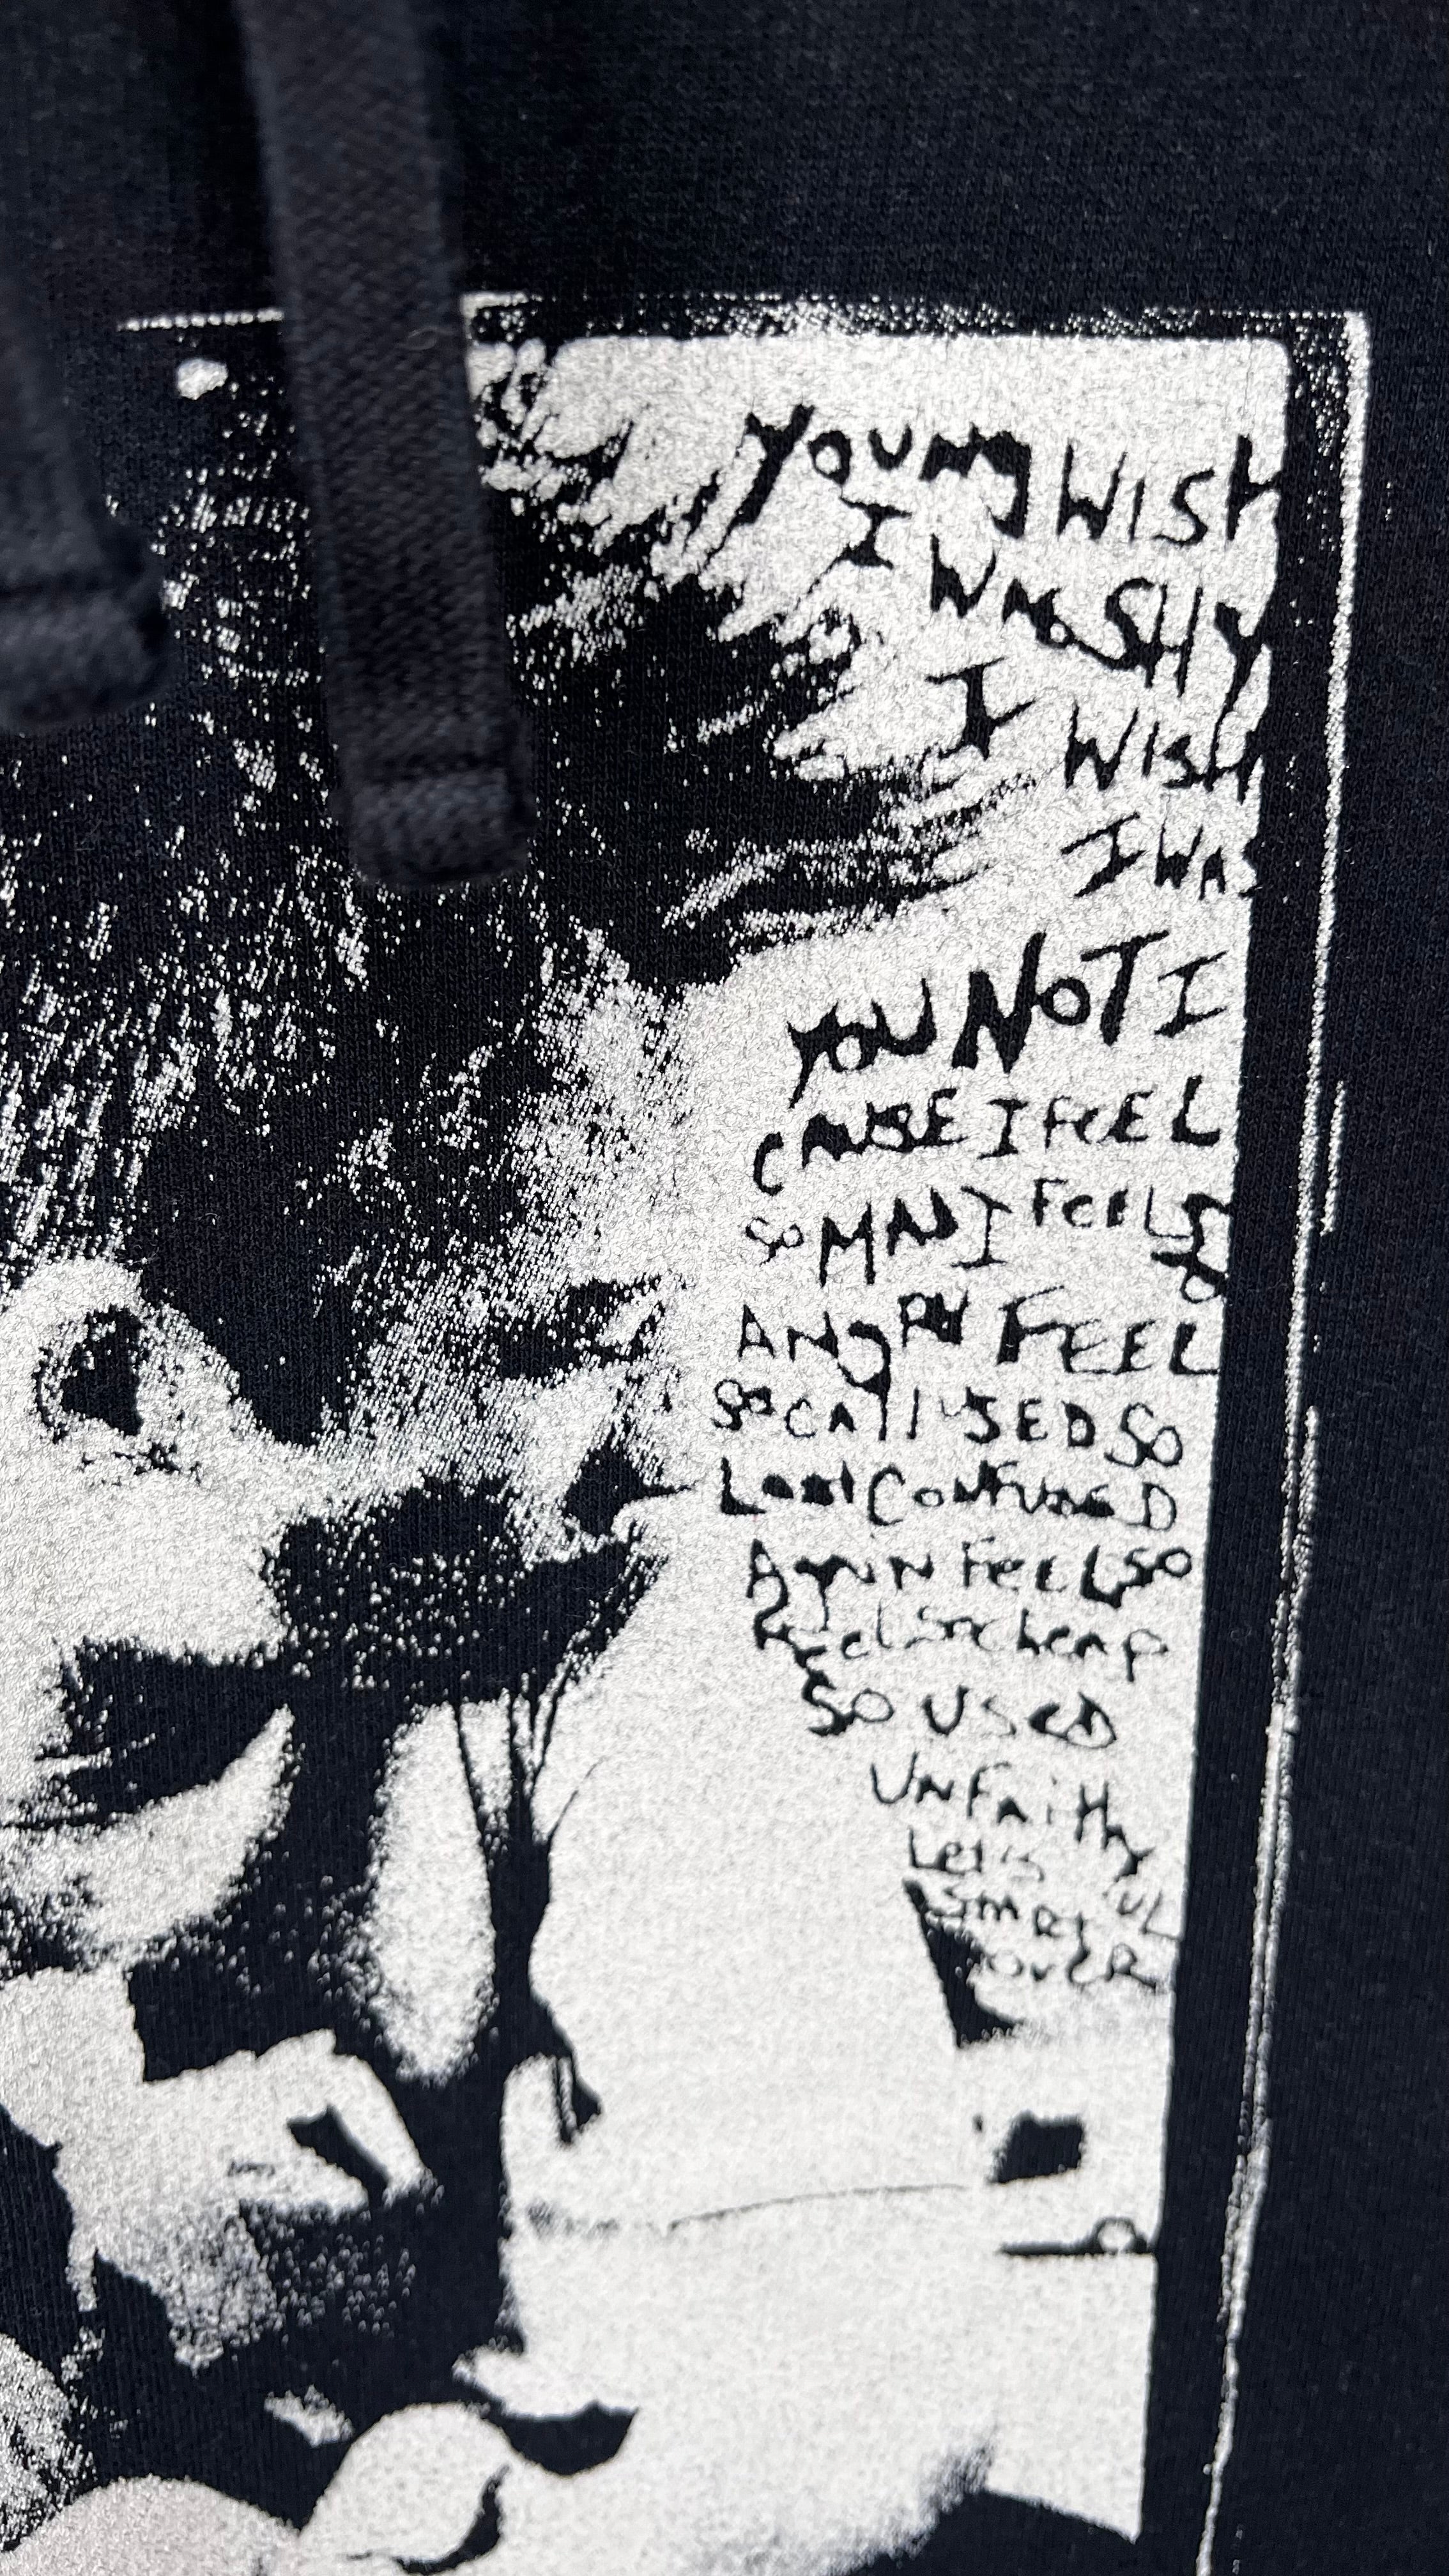 YOUNG WISH
I WAS SHY
I WISH
I WAS
YOU NOT I
CAUSE I FEEL
SO MAD I FEEL SO
ANGRY FEEL
SO CAllUSED SO
Lost CONFUSED
AGAIN FEEL SO
Feel So cheap
SO USED
UNFAiTHFUL
Let's
START
OVER